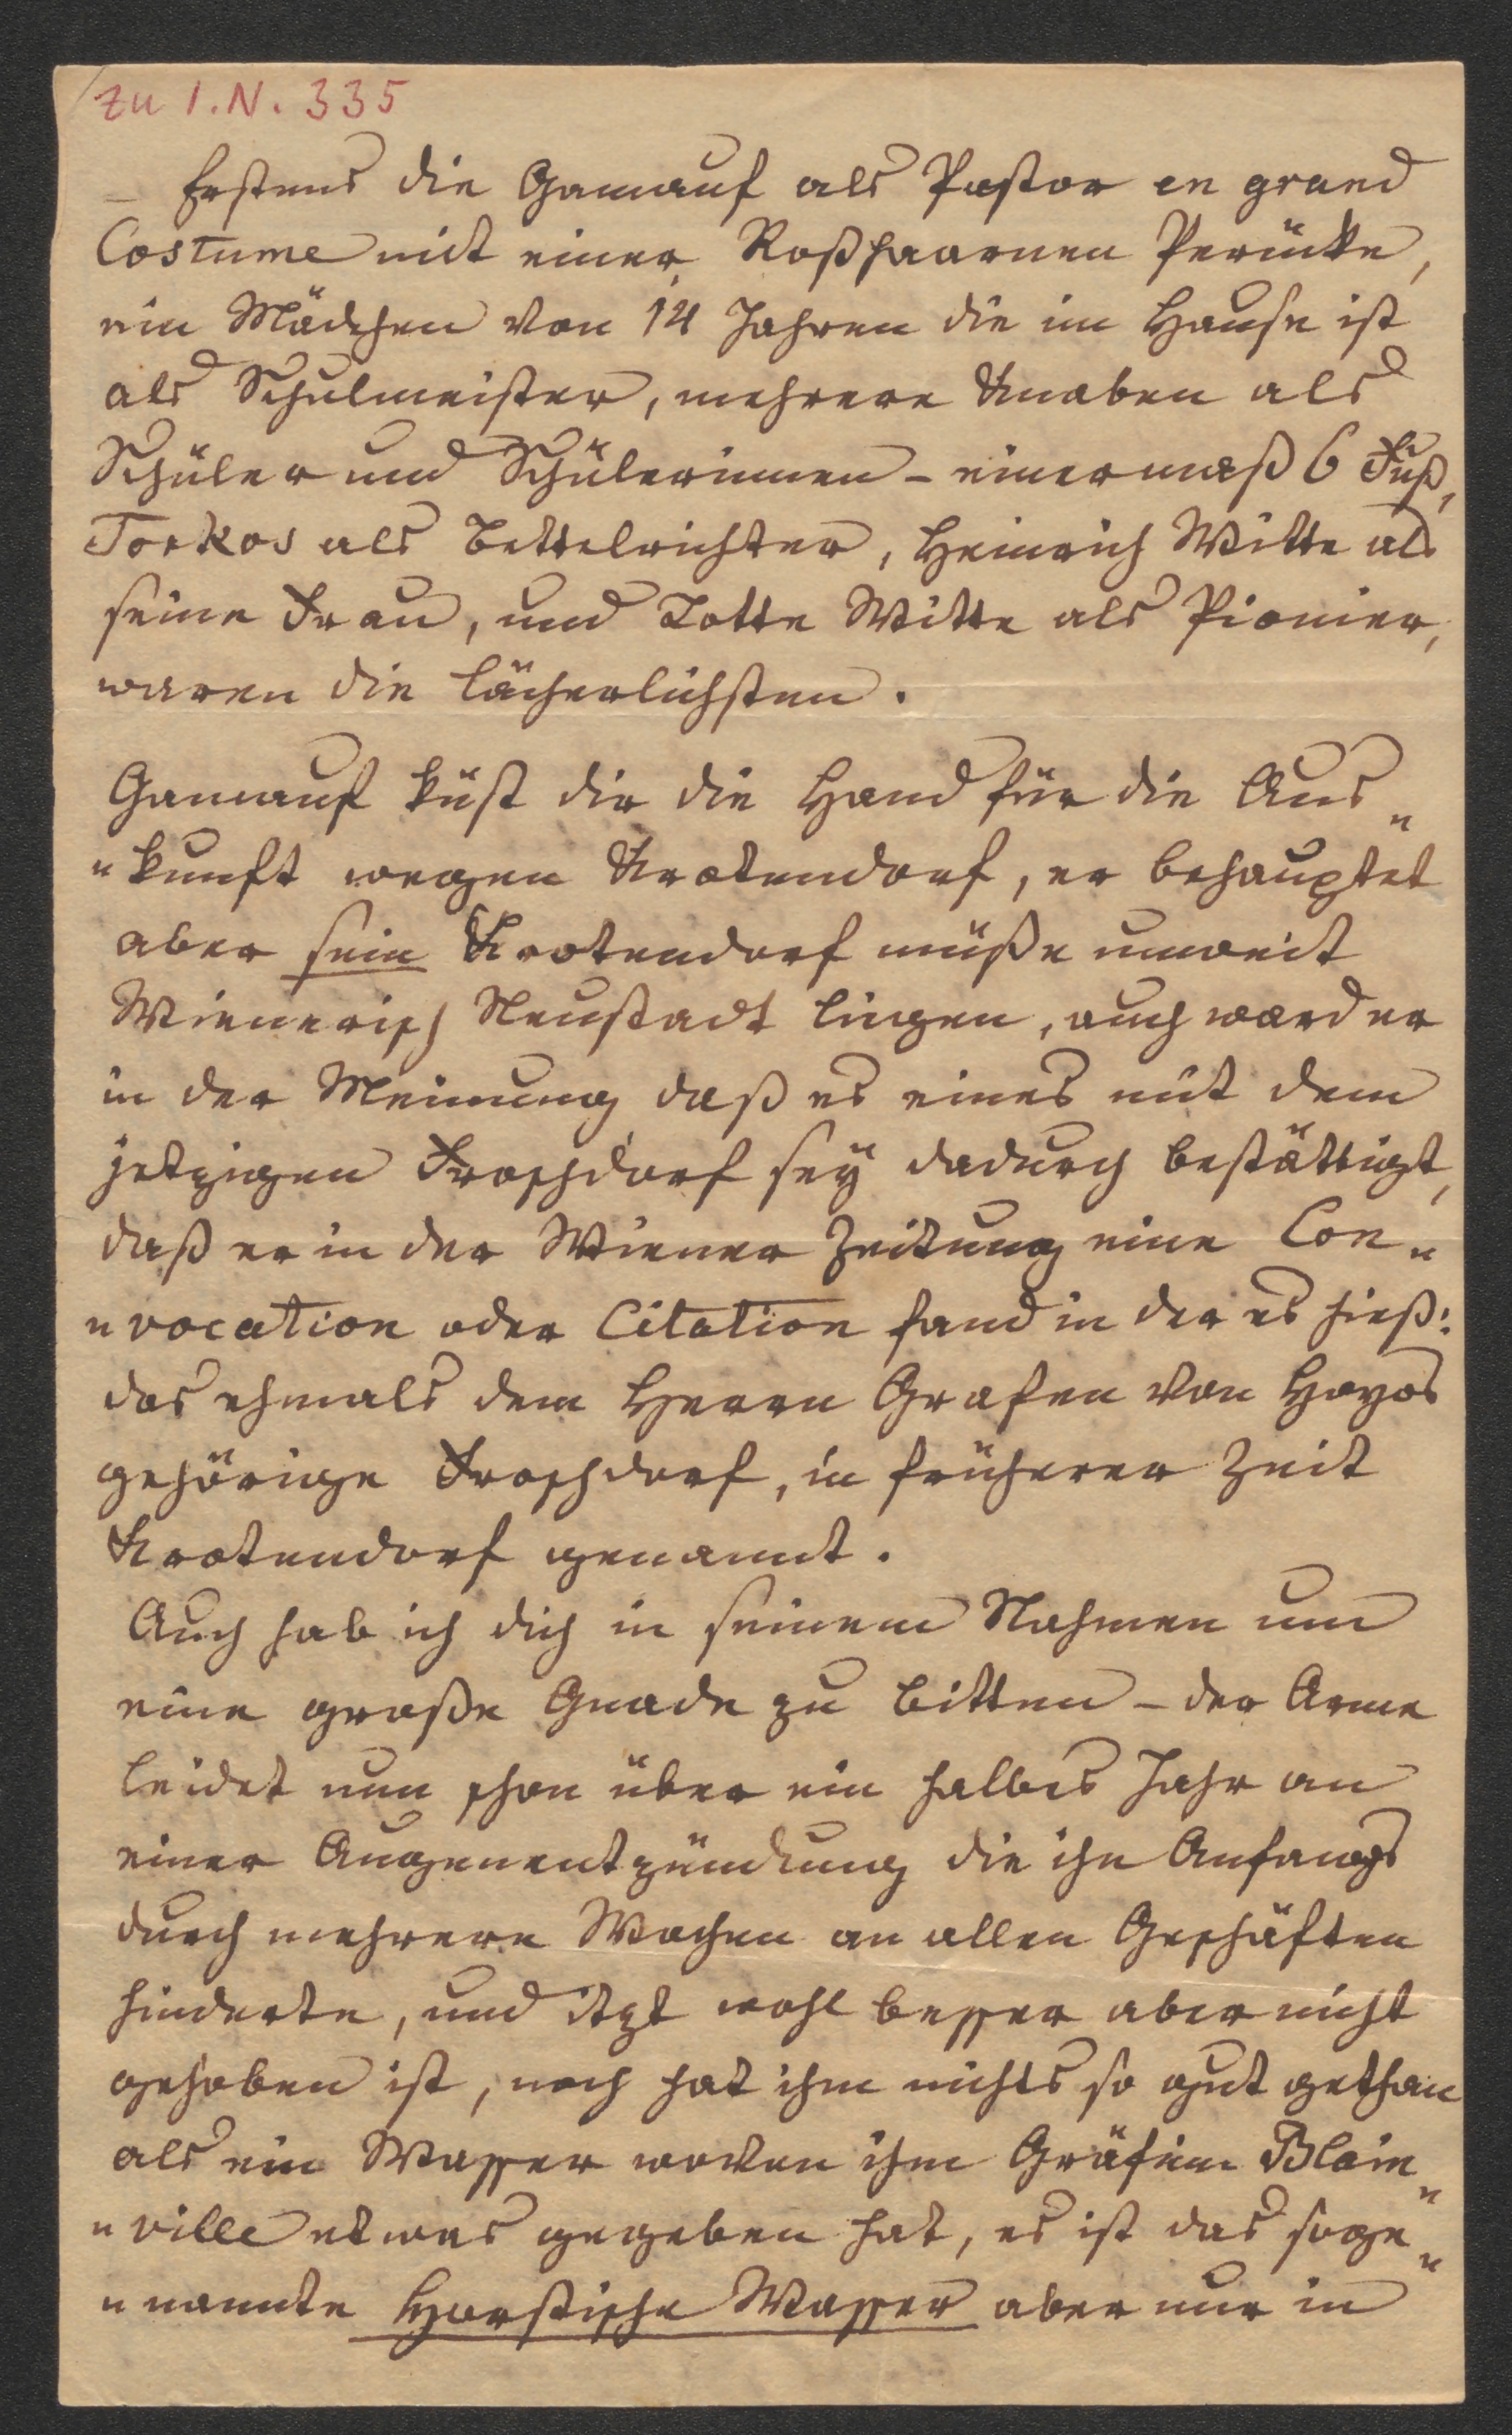 zu I.N. 335
– Erstens die Gamauf als Pastor en grand
Costume mit einer Roßhaarnen Perücke,
ein Mädchen von 14 Jahren die im Hause ist
als Schulmeister, mehrere Knaben als
Schüler und Schülerinnen – einer maß 6 Fuß,
Torkos als Bettelrichter, Heinrich Witte als
seine Frau, und Lotte Witte als Pionier,
waren die lächerlichsten.
Gamauf küst dir die Hand für die Aus„
„kunft wegen Krotendorf, er behauptet
aber sein Krotendorf müße unweit
Wienerisch Neustadt liegen, auch ward er
in der Meinung daß es eines mit dem
jetzigen Froschdorf sey dadurch bestättigt,
daß er in der Wiener Zeitung eine Con„
„vocation oder Citation fand in der es hieß:
das ehmals dem Herrn Grafen von Hoyos
gehörige Froschdorf, in früherer Zeit
Krotendorf genannt.
Auch hab ich dich in seinem Nahmen um
eine große Gnade zu bitten – der Arme
leidet nun schon über ein halbes Jahr an
einer Augenentzündung die ihn Anfangs
durch mehrere Wochen an allen Geschäften
hinderte, und itzt wohl besser aber nicht
gehoben ist, noch hat ihm nichts so gut gethan
als ein Wasser wovon ihm Gräfinn Blain„
„ville etwas gegeben hat, es ist das soge„
„nannte Horstische Wasser aber nur in